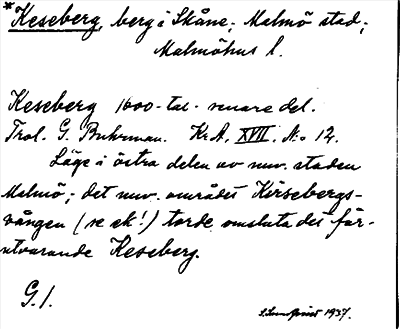 *Keseberg, berg i Skåne; Malmö stad;
Malmöhus l.
Keseberg 1600-tal. senare del.
Trol. G. Buhrman. Kr.A. XVII. No 12.
Läge i östra delen av nuv. staden
Malmö; det nuv. området Kirsebergs-
vången (se ek!) torde omsluta det för-
utvarande Keseberg.
G. l.
1937.